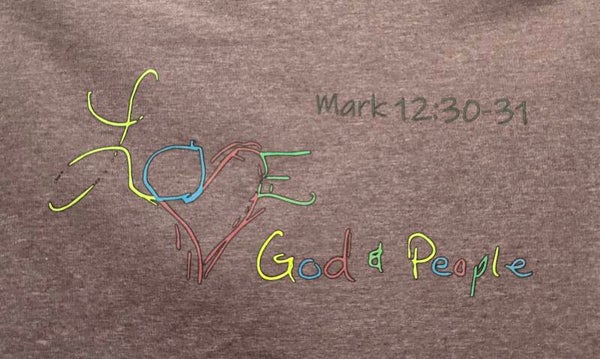 Mark 12:30-31
LOVE
God & People